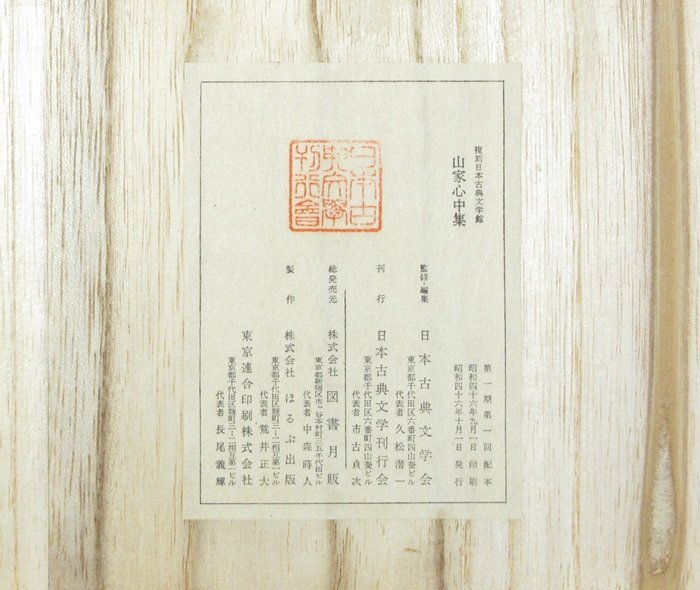 複刻日本古典文学館
山家心中集
第一期第一回配本
昭和四十六年九月一日 印刷
昭和四十六年十月一日 発行
監修・編集 日本古典文学会
東京都千代田区六番町四山菱ビル
代表者 久松潜一
刊行 日本古典文学刊行会
東京都千代田区六番町四山菱ビル
代表者 市古貞次
総発売元 株式会社 図書月販
東京都新宿区市ヶ谷本村町三五千代田ビル
代表者 中森蒔人
製作 株式会社 ほるぷ出版
東京都千代田区麹町三ー二相互第一ビル
代表者 荒井正大
東京連合印刷株式会社
東京都千代田区麹町三ー二相互第一ビル
代表者 長尾義輝
日本古
典文学
刊行會